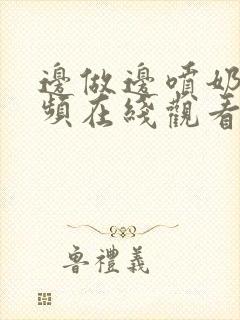 邊做邊噴奶
頻在綫觀看
魯禮義